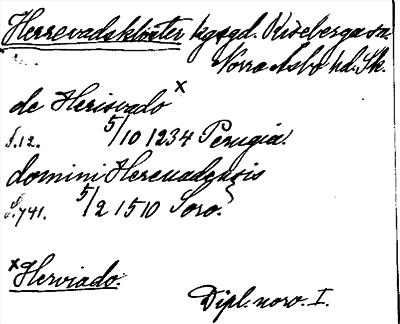 Herrevadskloster kgsgd. Riseberga sn
Norra Åsbo hd. Sk.
de Herisvado x
s. 12. 5/10 1234 Perugia.
domini Herevadensis
s. 741. 5/2 1510 Soro.
x Herviado.
Dipl. norv. I.